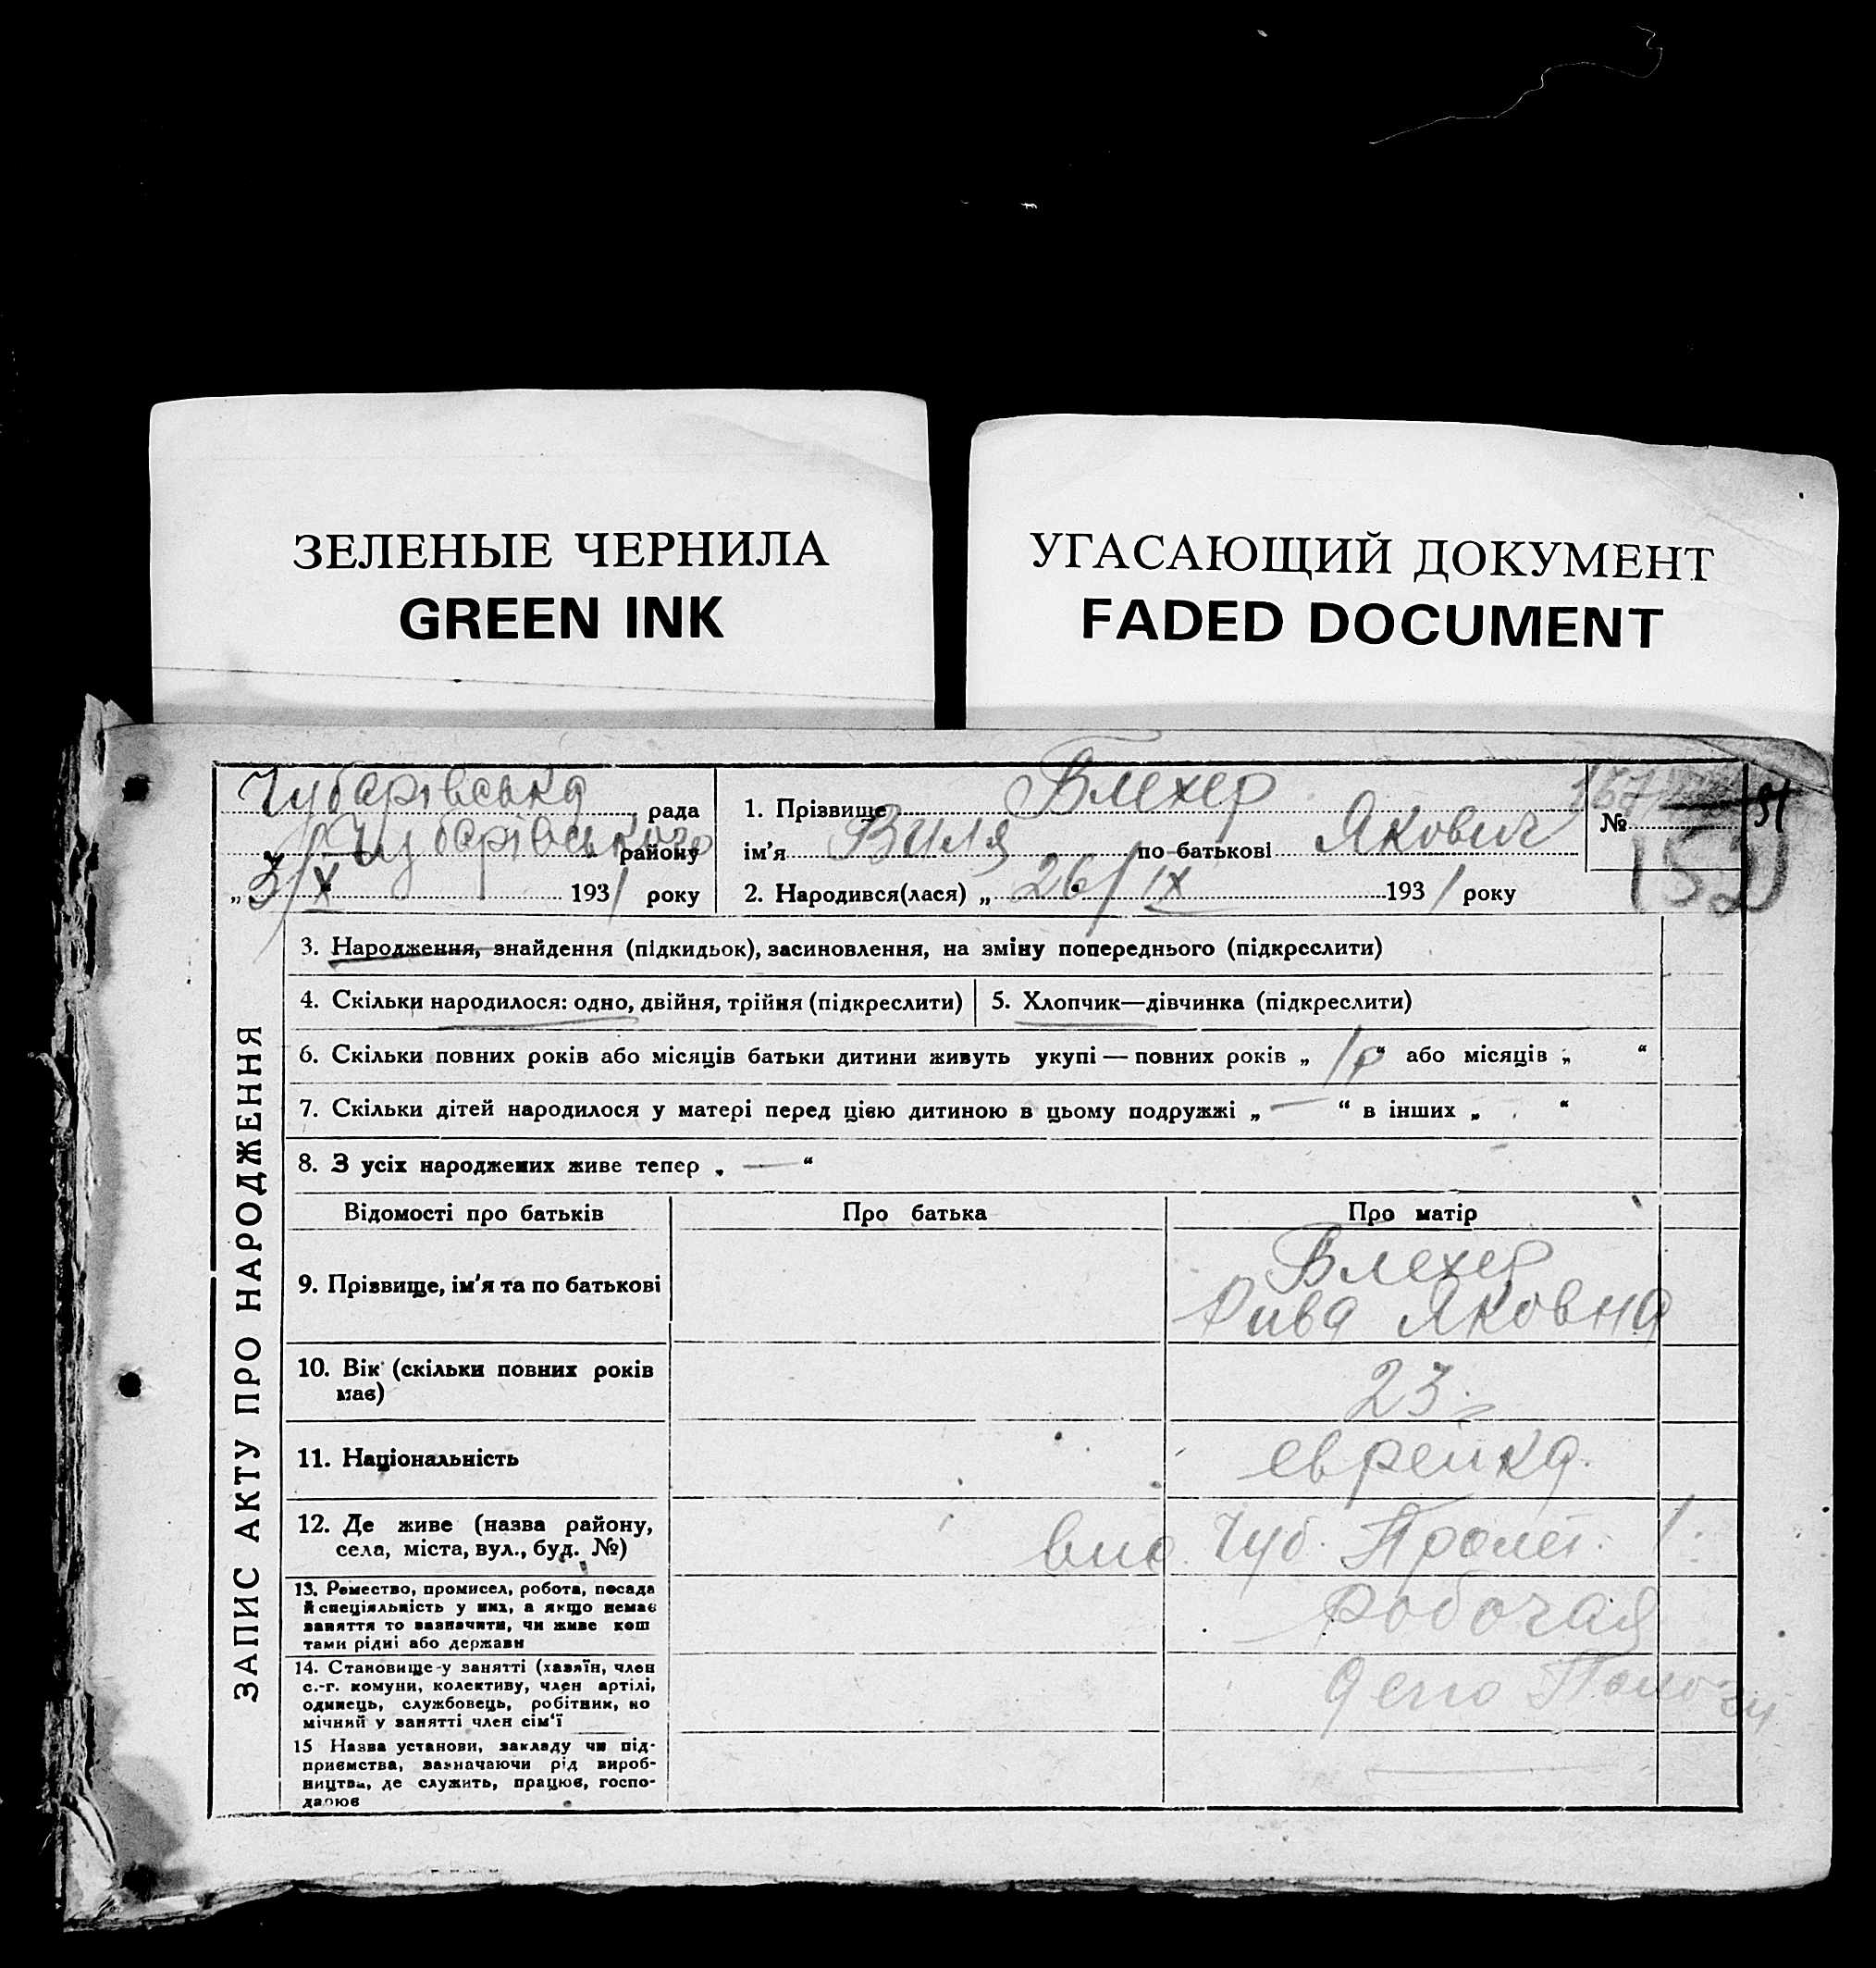 ЗЕЛЕНЫЕ ЧЕРНИЛА
GREEN INK
УГАСАЮЩИЙ ДОКУМЕНТ
FADED DOCUMENT
Чубарівська рада
Чубарівського району
„ 3/X 1931 року
1. Прізвище Блехер
ім'я Виля по-батькові Якович
2. Народився(лася) „ 26/IX 1931 року
№ 157
51
152
ЗАПИС АКТУ ПРО НАРОДЖЕННЯ
3. Народження, знайдення (підкидьок), засиновлення, на зміну попереднього (підкреслити)
4. Скільки народилося: одно, двійня, трійня (підкреслити)
5. Хлопчик—дівчинка (підкреслити)
6. Скільки повних років або місяців батьки дитини живуть укупі — повних років „ 1р “ або місяців „ “
7. Скільки дітей народилося у матері перед цією дитиною в цьому подружжі „ — “ в інших „ “
8. З усіх народжених живе тепер „ — “
Відомості про батьків
Про батька
Про матір
9. Прізвище, ім'я та по батькові
Блехер
Рива Яковна
10. Вік (скільки повних років
має)
23
11. Національність
еврейка.
12. Де живе (назва району,
села, міста, вул., буд. №)
Чуб. Пролет.
13. Ремество, промисел, робота, посада
й спеціяльність у них, а якщо немає
заняття то зазначити, чи живе кош
тами рідні або держави
робочая
14. Становище у занятті (хазяїн, член
с.-г. комуни, колективу, член артілі,
одинець, службовець, робітник, по
мічний у занятті член сім'ї
депо Пологи
15 Назва установи, закладу чи під-
приємства, зазначаючи рід вироб-
ництва, де служить, працює, госпо-
дарює